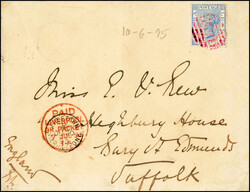 10-6-95
Miss E. V. Rew
Heighbury House
Bury St Edmunds
Suffolk
England
PAID
LIVERPOOL
BR. PACKET